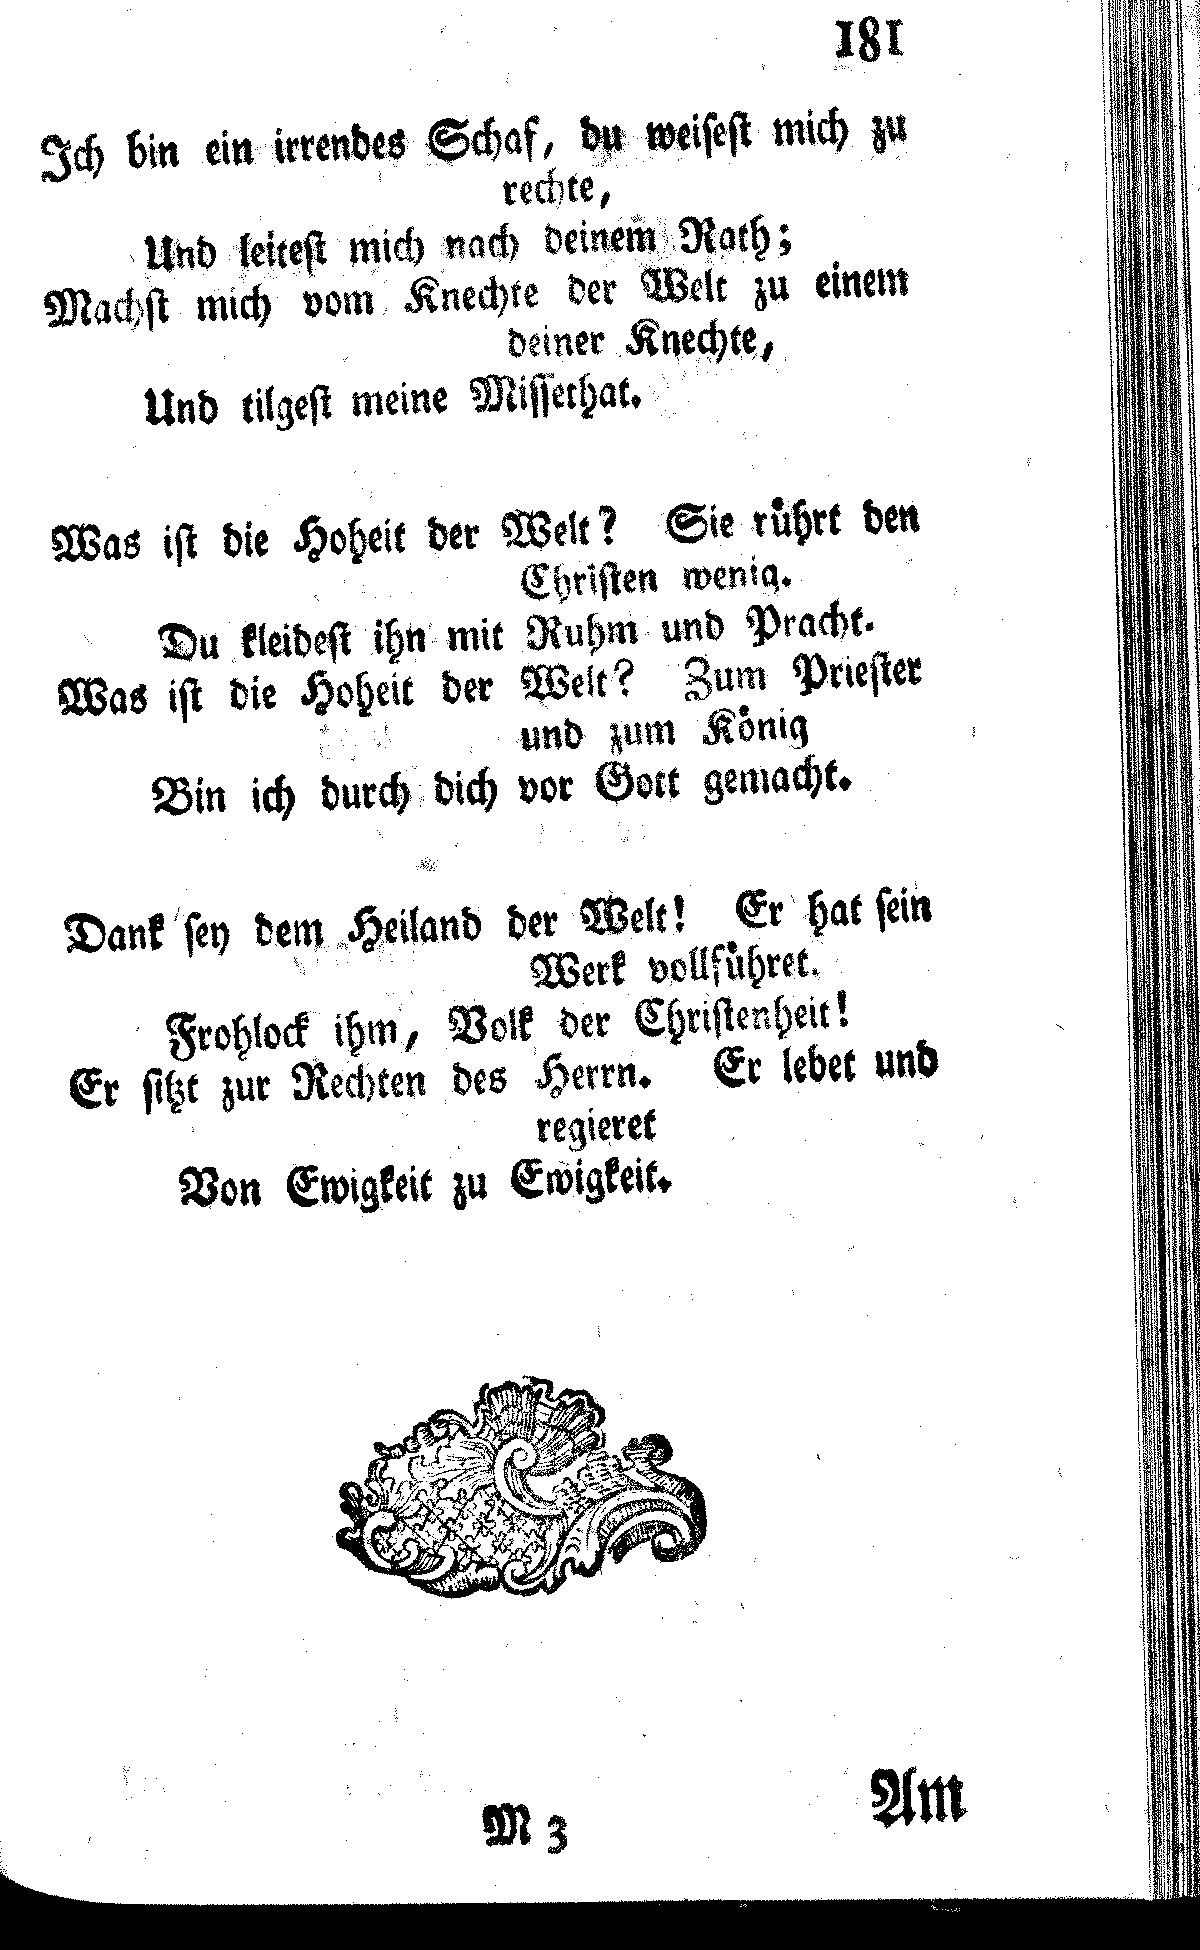 181
Ich bin ein irrendes Schaf, du weisest mich zu
rechte,
Und leitest mich nach deinem Rath;
Machst mich vom Knechte der Welt zu einem
deiner Knechte,
Und tilgest meine Missethat.
Was ist die Hoheit der Welt? Sie rührt den
Christen wenig.
Du kleidest ihn mit Ruhm und Pracht.
Was ist die Hoheit der Welt? Zum Priester
und zum König
Bin ich durch dich vor Gott gemacht.
Dank sey dem Heiland der Welt! Er hat sein
Werk vollführet.
Frohlock ihm, Volk der Christenheit!
Er sitzt zur Rechten des Herrn. Er lebet und
regieret
Von Ewigkeit zu Ewigkeit.
M 3
Am